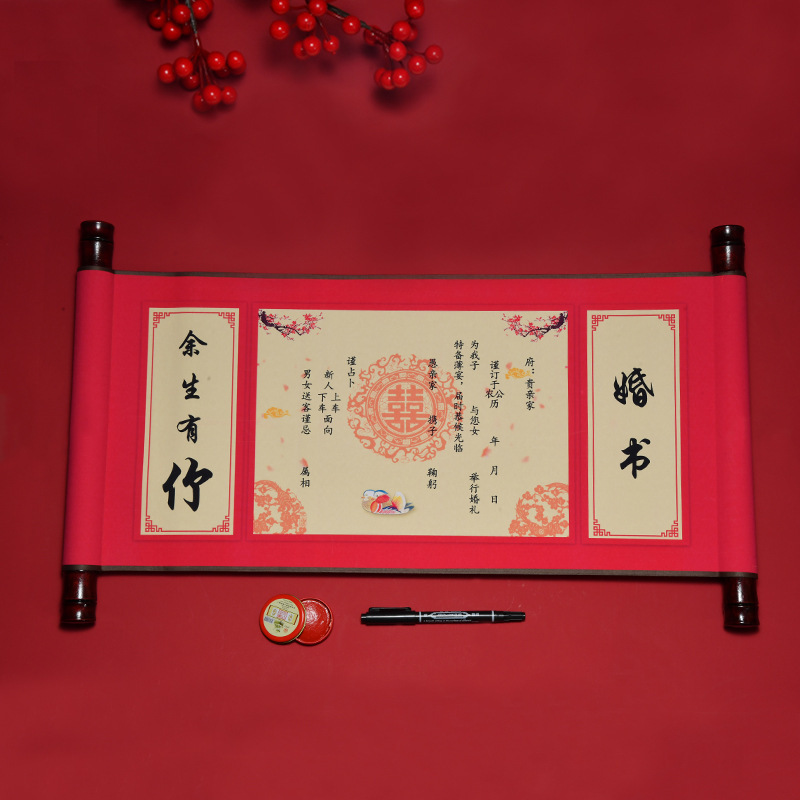 婚书
府：贵亲家
谨订于公农历 年 月 日
为我子 与您女 举行婚礼
特备薄宴，届时恭候光临
愚亲家 携子 鞠躬
囍
谨占卜
新人上车下车面向
男女送客谨忌 属相
余生有你